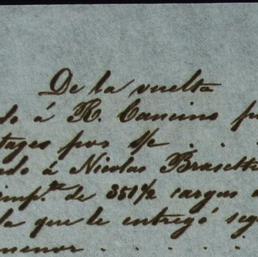 De la vuelta
do á R. Cancino p
tages por s/c . .
ado á Nicolas Brasetti
imp.te de 351½ cargas
la que le entregó seg
menor . . . . .